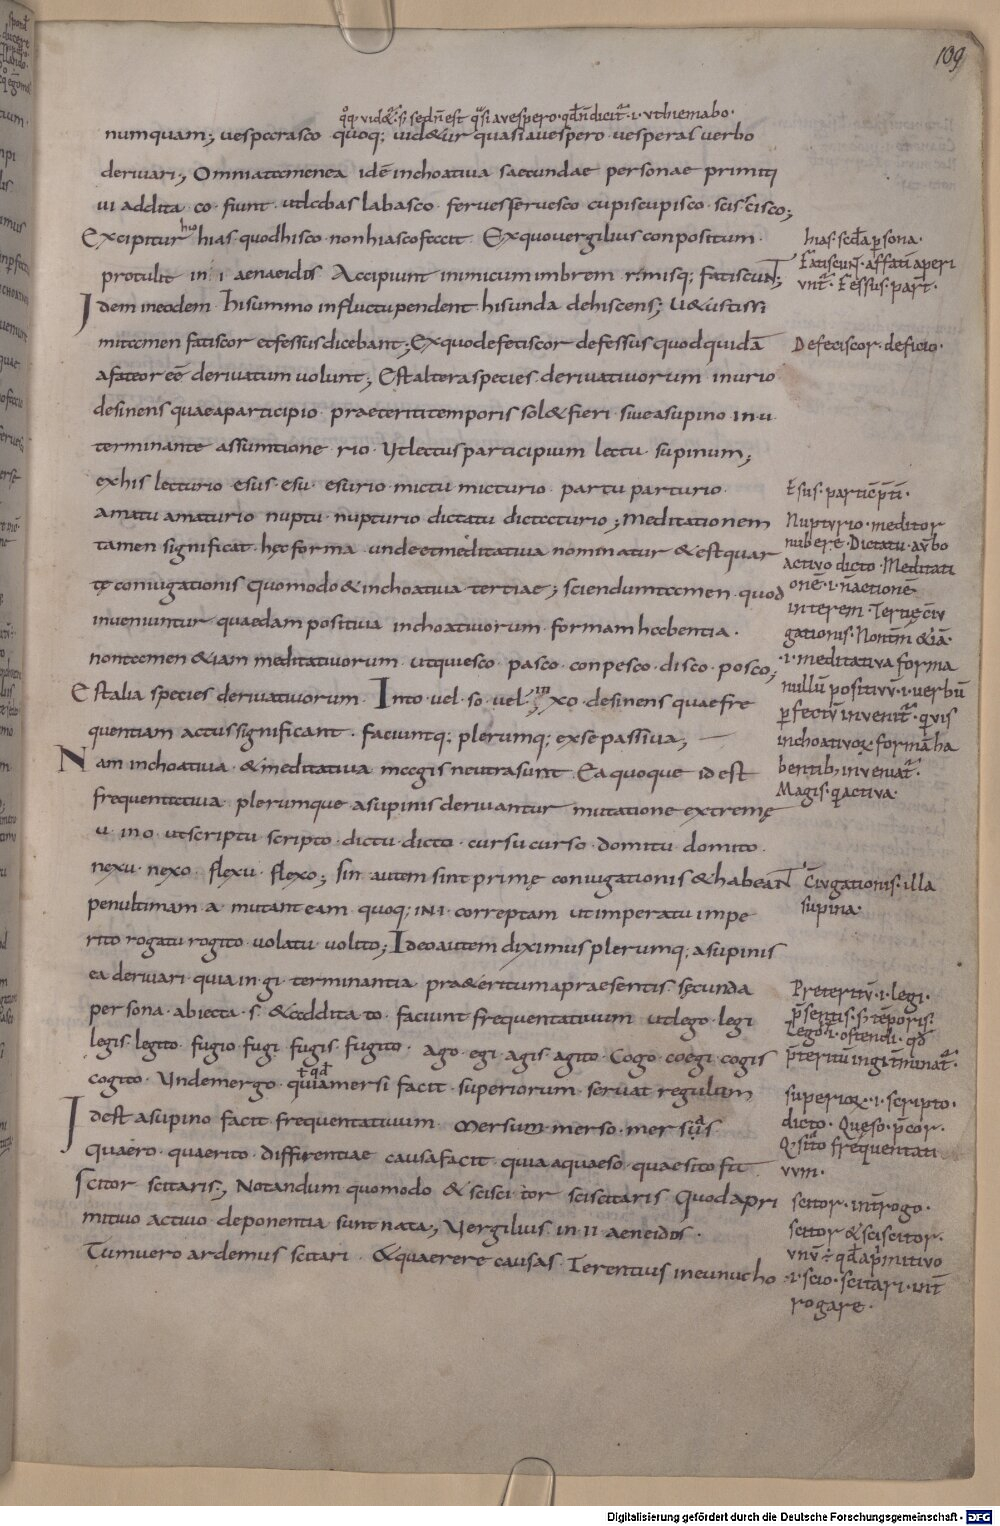 109
qͦq; vid&ur s. sed n̄ est q̄si a vespero · qd̄ n̄ dicit᷑ · i · vt hiemabo ·
numquam; vesperasco quoq; uid&ur quasi auespero uesperas uerbo
deriuari; Omnia tamen ea idē inchoatiua saecundae personae primiti
ui addita co · fiunt · ut labas labasco · ferues feruesco cupis cupisco · scis scisco;
Excipitur hio hias · quod hisco · non hiasco facit · Ex quo uergilius conpositum ·
protulit in · i · aenaeidos Accipiunt inimicum imbrem rimisq; fatiscunt;
Idem in eodem · hi summo in fluctu pendent · his unda dehiscens; U&ustissi
mi tamen fatiscor et fessus dicebant; Ex quo defetiscor defessus quod quidā
a fateor eē deriuatum uolunt; Est altera species deriuatiuorum in urio
desinens quae a participio praeteriti temporis sol& fieri siue a supino in · u ·
terminante assumtione · rio · Ut lectus participium lectu · supinum;
ex his lecturio esus · esu · esurio · mictu micturio · partu parturio ·
amatu amaturio nuptu · nupturio dictatu dictaturio; Meditationem
tamen significat · haec forma · unde et meditatiua nominatur & est quar
tę coniugationis quomodo & inchoatiua tertiae; sciendum tamen · quod
inueniuntur quaedam positiua inchoatiuorum formam habentia ·
non tamen & iam meditatiuorum · ut quiesco · pasco · conpesco · disco · posco;
Est alia species deriuatiuorum · In to · uel · so · uel · in xo · desinens quae fre
quentiam actus significant · faciuntq; plerumq; ex se passiua;
Nam inchoatiua · & meditatiua magis neutra sunt · Ea quoque id est
frequentatiua plerumque a supinis deriuantur mutatione extremę
u · in o · ut scriptu scripto · dictu · dicto · cursu curso · domitu domito ·
nexu · nexo · flexu · flexo; sin autem sint primę coniugationis & habeant
penultimam a · mutant eam quoq; IN · I · correptam ut imperatu impe
rito rogatu rogito uolatu uolito; Ideo autem diximus plerumq; a supinis
ea deriuari · quia in · gi · terminantia praeteritum a praesentis · sęcunda
persona · abiecta · s · & addita to · faciunt frequentatiuum ut lego · legi
legis · legito · fugio fugi · fugis · fugito · ago · egi · agis · agito · Cogo · coegi · cogis
cogito · Unde mergo · quia mersi facit · superiorum · seruat regulam
Id est a supino facit frequentatiuum · mersum · merso · mersas
quaero · quaerito · differentiae causa facit · quia a quaeso · quaesito fit
Scitor scitaris; Notandum quomodo & scisci tor sciscitaris Quod a pri
mitiuo actiuo deponentia sunt nata; Uergilius · in · II · aeneidos ·
Tum uero ardemus scitari · & quaerere causas · Terentius in eunucho
hias · scd̄a p̄sona ·
Fatiscunt · affatī aperi
vnt᷑ · Fessus · part̄ ·
Defeciscor · deficio ·
Esus · particp̄ p̄t̄i ·
Nupturio · meditor
nubere · Dictatu · a v̄bo
activo dicto · Meditati
onē · i · n̄ actionē
interem · Tertię c̄iu
gationis · Non tm̄ & iā ·
· i · meditativa forma
nullū positivū · i · verbū
p̄fectū invenit᷑ · q̄vis
inchoativoꝝ formā ha
bentib; inveniat᷑ ·
Magis · q̄ activa ·
C̄iugationis · illa
supina ·
Preteritū · i · legi ·
p̄sentis · s · tēporis ·
Lego · i · ostendi · qd̄
p̄teritū in gi t̄minat᷑ ·
superioꝝ · i · scripto ·
dicto · Queso · p̄cor ·
Q̄sito frequentati
vvm ·
scitor · int̄rogo ·
scitor & sciscitor ·
vnū ÷ qd̄ a p̄mitivo
· i · scio · scitari · int̄
rogare ·
Digitalisierung gefördert durch die Deutsche Forschungsgemeinschaft - DFG